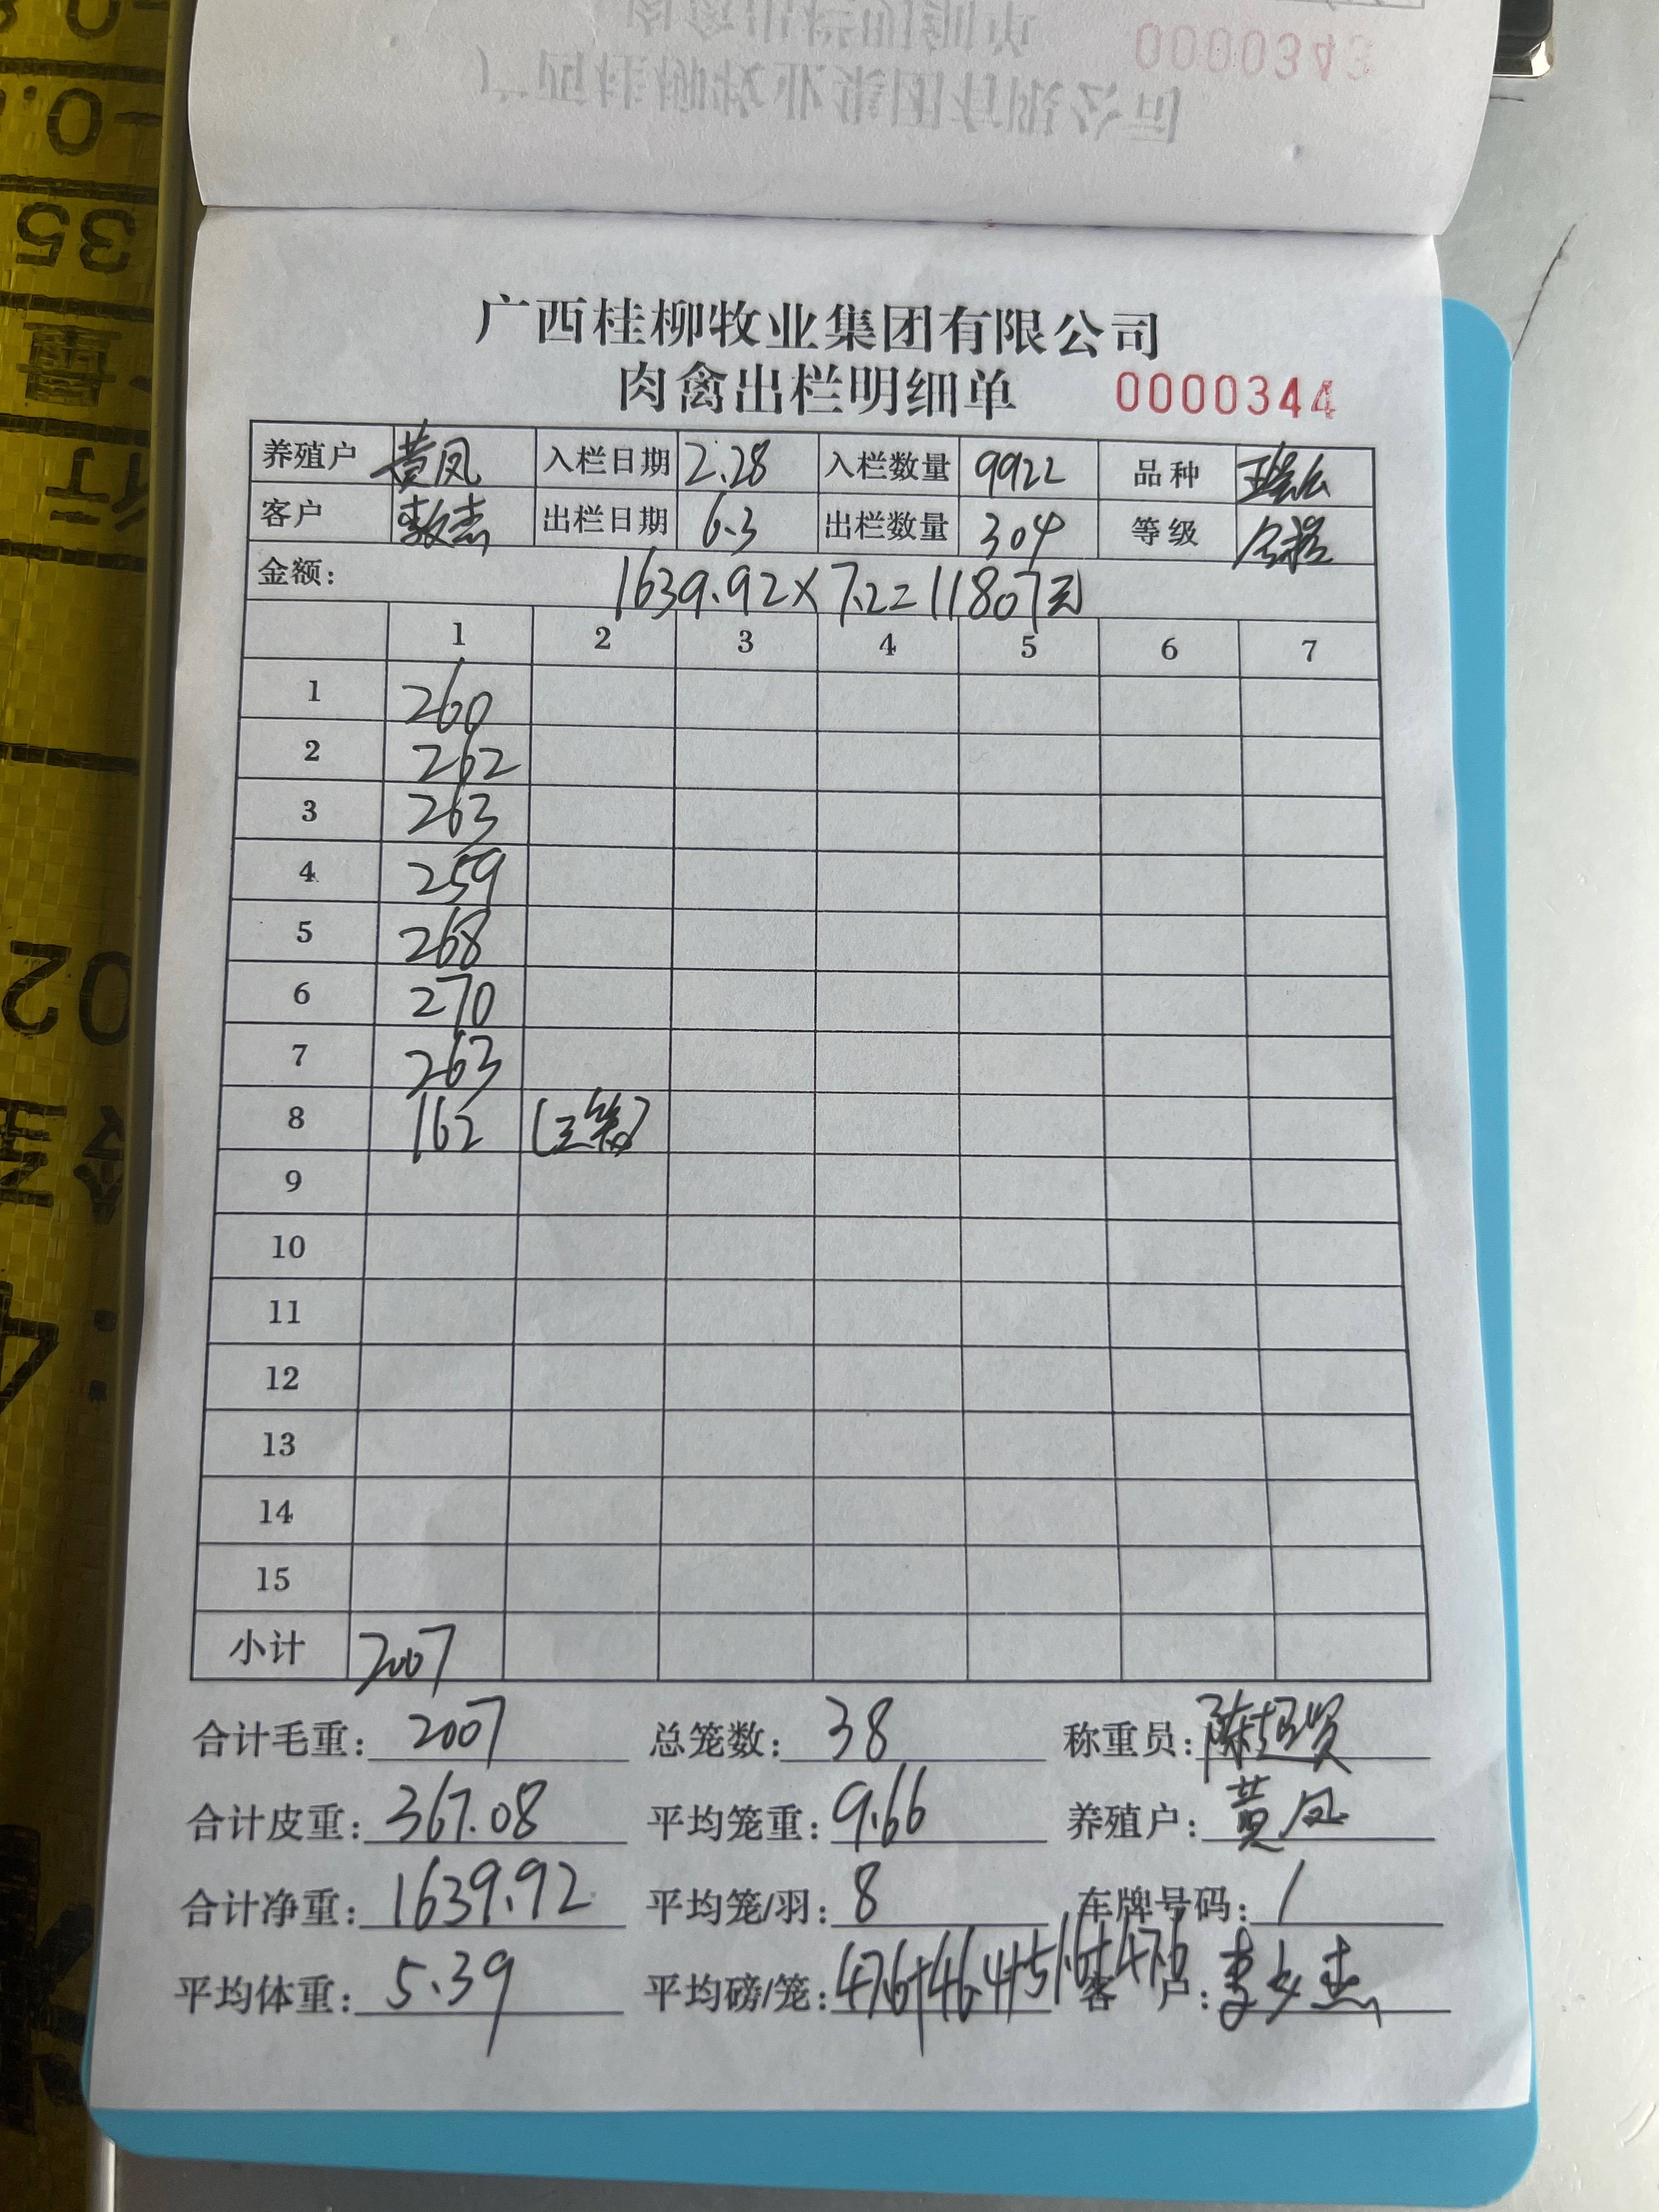 0000343
广西桂柳牧业集团有限公司
肉禽出栏明细单 0000344
养殖户 黄凤 入栏日期 2.28 入栏数量 9922 品种
客户 出栏日期 6.3 出栏数量 304 等级 合格
金额: 1639.92×7.2=11807元
1 2 3 4 5 6 7
1 260
2 262
3 263
4 259
5 268
6 270
7 263
8 162 (三笼)
9
10
11
12
13
14
15
小计 2007
合计毛重: 2007 总笼数: 38 称重员: 陈超贤
合计皮重: 367.08 平均笼重: 9.66 养殖户: 黄凤
合计净重: 1639.92 平均笼/羽: 8 车牌号码: /
平均体重: 5.39 平均磅/笼: 47.6+46.4+51.6+47.6 客户:
35
02